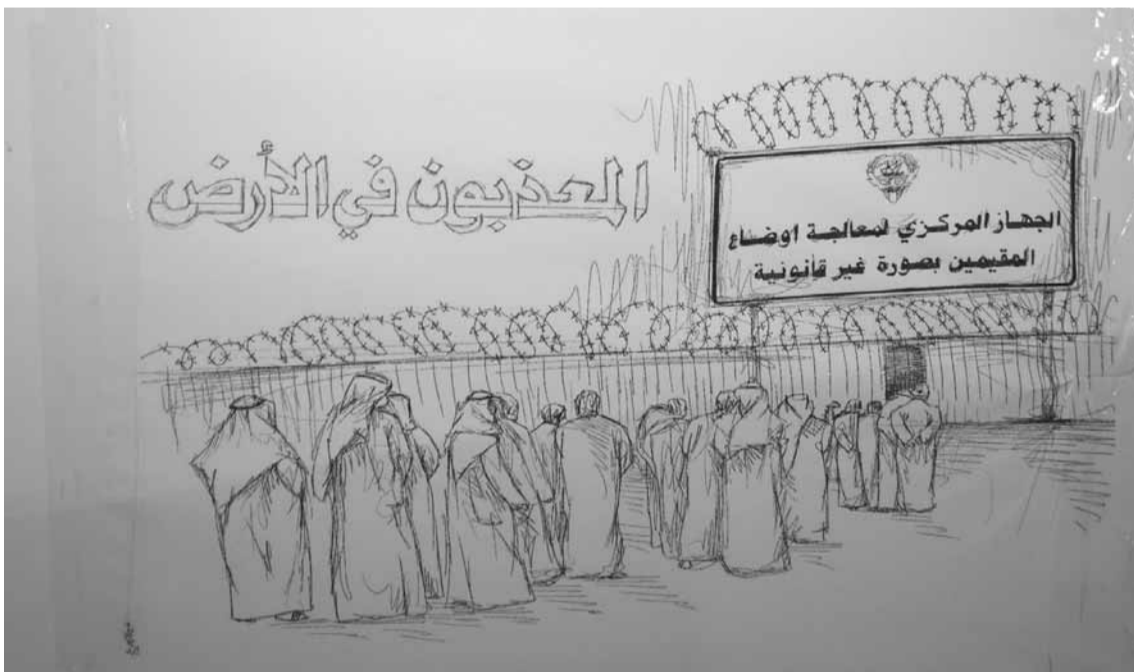 المعذبون في الأرض
الجهاز المركزي لمعالجة اوضاع
المقيمين بصورة غير قانونية